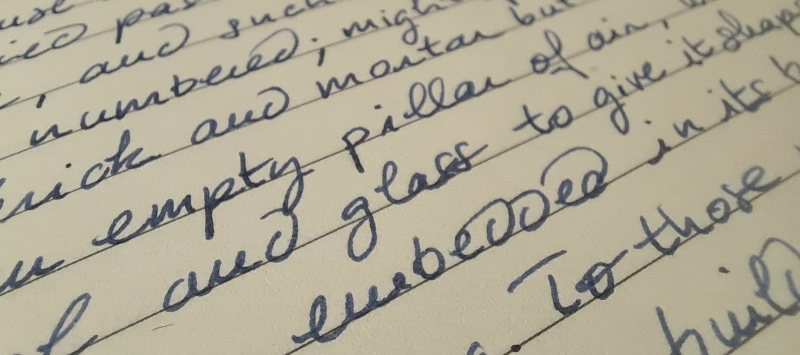 and such
numbered; migh
rick and mortar but
empty pillar of air,
and glass to give it shap
embedded in its b
. To those
build